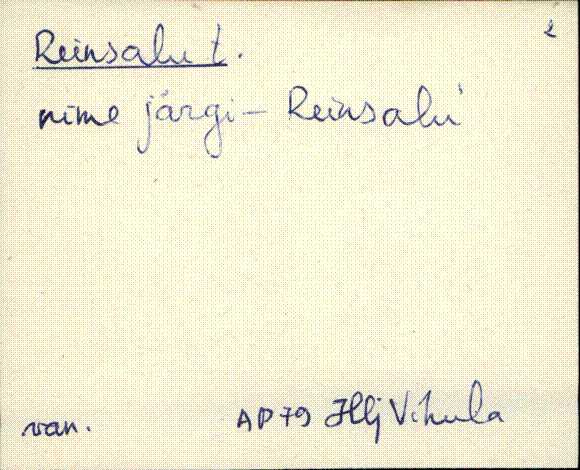 2
Reinsalu t.
nime järgi – Reinsalu
van. AP 79 Hlj Vihula